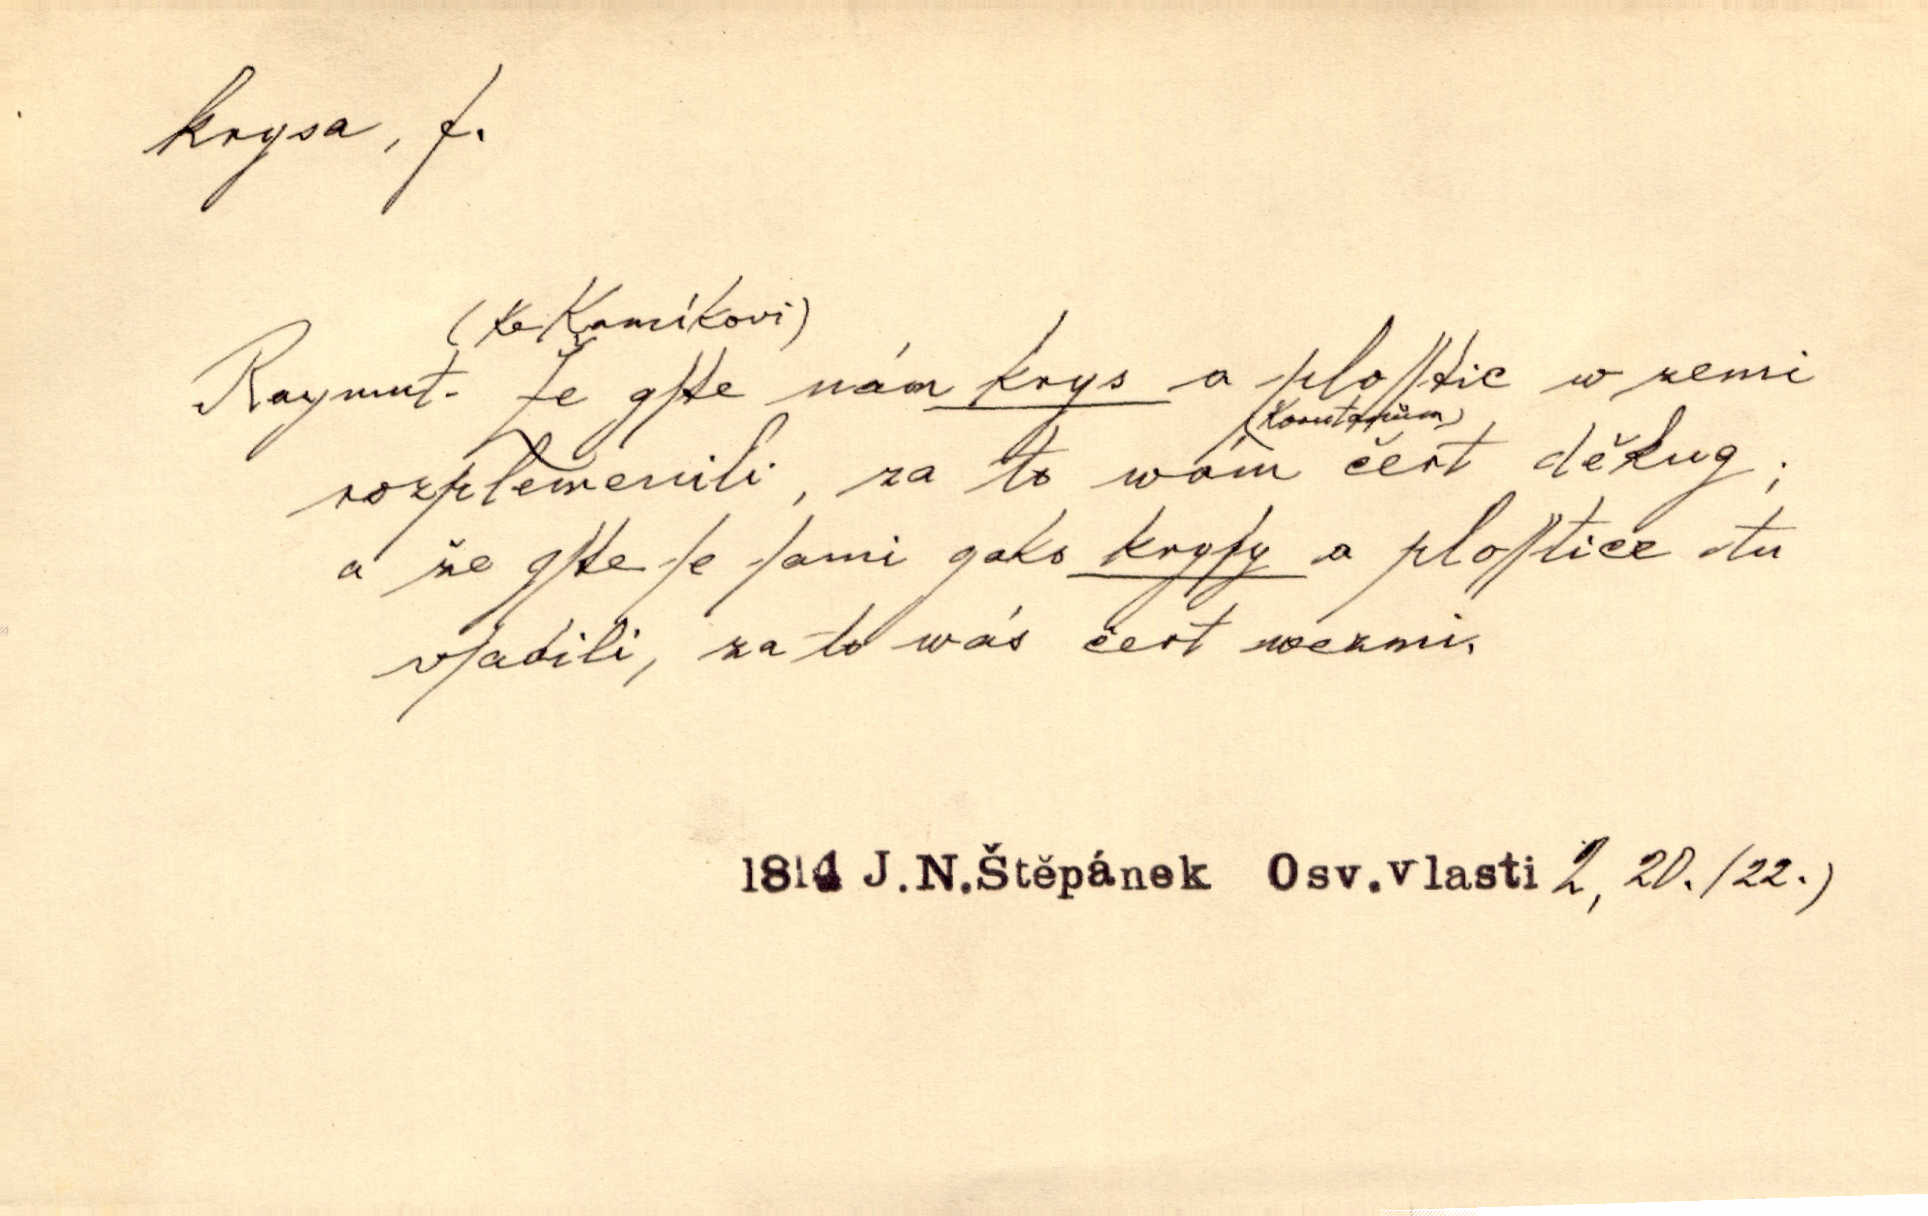 krysa, f.
(ke Kamíkovi)
Raymut. Že gſte nám krys a ploſſtic w zemi
(Korutanům)
rozplemenili, za to wám čert děkug;
a že gſte ſe ſami gako kryſy a ploſſtice tu
vſadili, za to wás čert wezmi.
1814 J.N.Štěpánek Osv.vlasti 2, 20./22.)